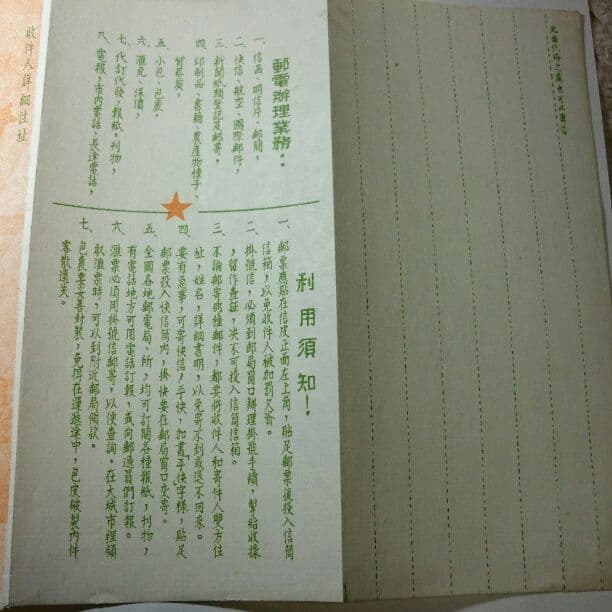 郵電辦理業務：
一、信函、明信片、郵簡，
二、快信、航空、國際郵件，
三、新聞紙類登記及郵寄，
四、印刷品、書籍、農產物種子、
貿易契，
五、小包、包裹，
六、滙兌、保價，
七、代訂代發，報紙，刊物，
八、電報，市內電話，長途電話，
利用須知！
一、郵票應貼在信皮正面左上角，貼足郵票後投入信筒
信箱，以免收件人被加罰欠資。
二、掛號信，必須到郵局窗口辦理掛號手續，掣給收據
，留作查証，決不可投入信筒信箱。
三、不論郵寄哪種郵件，都要將收件人和寄件人雙方住
址，姓名，詳細書明，以免寄不到或退不回來。
四、要有急事，可寄快信，平快，加書平快字樣，貼足
郵票投入快信筒內，掛快要在郵局窗口交寄。
五、全國各地郵電局、所，均可訂閱各種報紙，刊物，
有電話地方可用電話訂報，或向郵遞員們訂報。
六、滙票必須用掛號信郵寄，以便查詢。在大城市裡領
取滙票時，可以到附近郵局領款。
七、包裹要妥善封裝，免得在運遞途中，包皮破裂內件
零散遺失。
收件人詳細住址